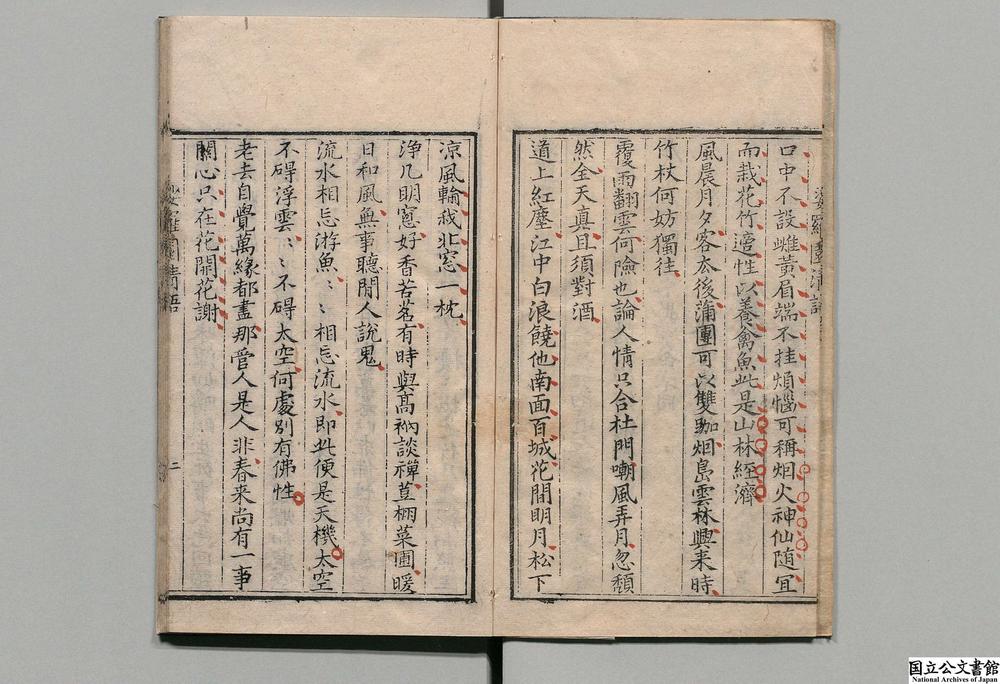 口中不設雌黃眉端不挂煩惱可稱烟火神仙随宜
而栽花竹適性以養禽魚此是山林經濟
風晨月夕客去後蒲團可以雙跏烟島雲林興来時
竹杖何妨獨往
覆雨翻雲何險也論人情只合杜門嘲風弄月忽頽
然全天真且須對酒
道上紅塵江中白浪饒他南面百城花間明月松下
凉風輸我北窓一枕
淨几明窻好香苦茗有時與高衲談禪荳棚菜圃暖
日和風無事聽閒人說鬼
流水相忘游魚〻〻相忘流水即此便是天機太空
不碍浮雲〻〻不碍太空何處别有佛性
老去自覺萬緣都盡那管人是人非春来尚有一事
關心只在花開花謝
娑羅園清語
二
娑羅園清語
国立公文書館
National Archives of Japan